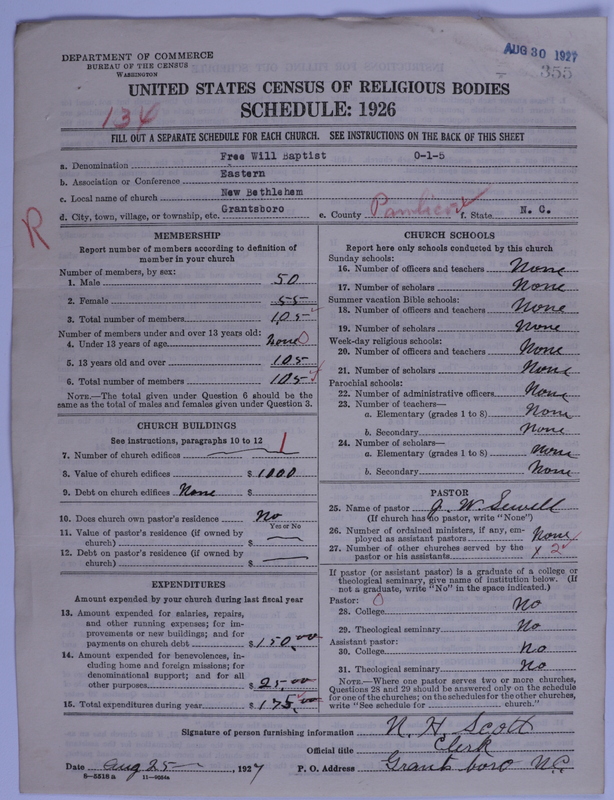 DEPARTMENT OF COMMERCE
BUREAU OF THE CENSUS
WASHINGTON
AUG 30 1927
355
UNITED STATES CENSUS OF RELIGIOUS BODIES
SCHEDULE: 1926
134
FILL OUT A SEPARATE SCHEDULE FOR EACH CHURCH. SEE INSTRUCTIONS ON THE BACK OF THIS SHEET
a. Denomination Free Will Baptist 0-1-5
b. Association or Conference Eastern
c. Local name of church New Bethlehem
d. City, town, village, or township, etc. Grantsboro e. County Pamlico f. State N. C.
R
MEMBERSHIP
Report number of members according to definition of
member in your church
Number of members, by sex:
1. Male 50
2. Female 55
3. Total number of members 105
Number of members under and over 13 years old:
4. Under 13 years of age None 0
5. 13 years old and over 105
6. Total number of members 105
NOTE.—The total given under Question 6 should be the
same as the total of males and females given under Question 3.
CHURCH BUILDINGS
See instructions, paragraphs 10 to 12
7. Number of church edifices 1
8. Value of church edifices $ 1000
9. Debt on church edifices None $
10. Does church own pastor's residence No
Yes or No
11. Value of pastor's residence (if owned by
church) $
12. Debt on pastor's residence (if owned by
church) $
EXPENDITURES
Amount expended by your church during last fiscal year
13. Amount expended for salaries, repairs,
and other running expenses; for im-
provements or new buildings; and for
payments on church debt $ 150.00
14. Amount expended for benevolences, in-
cluding home and foreign missions; for
denominational support; and for all
other purposes $ 25.00
15. Total expenditures during year $ 175.00
CHURCH SCHOOLS
Report here only schools conducted by this church
Sunday schools:
16. Number of officers and teachers None
17. Number of scholars None
Summer vacation Bible schools:
18. Number of officers and teachers None
19. Number of scholars None
Week-day religious schools:
20. Number of officers and teachers None
21. Number of scholars None
Parochial schools:
22. Number of administrative officers None
23. Number of teachers—
a. Elementary (grades 1 to 8) None
b. Secondary None
24. Number of scholars—
a. Elementary (grades 1 to 8) None
b. Secondary None
PASTOR
25. Name of pastor J. W. Sewell
(If church has no pastor, write "None")
26. Number of ordained ministers, if any, em-
ployed as assistant pastors None
27. Number of other churches served by the
pastor or his assistants 2
If pastor (or assistant pastor) is a graduate of a college or
theological seminary, give name of institution below. (If
not a graduate, write "No" in the space indicated.)
Pastor: 0
28. College No
29. Theological seminary No
Assistant pastor:
30. College No
31. Theological seminary No
NOTE.—Where one pastor serves two or more churches,
Questions 28 and 29 should be answered only on the schedule
for one of the churches; on the schedules for the other churches,
write "See schedule for church."
Signature of person furnishing information N. H. Scott
Official title Clerk
Date Aug 25, 1927 P. O. Address Grantsboro N.C.
8-5518a 11-9054a